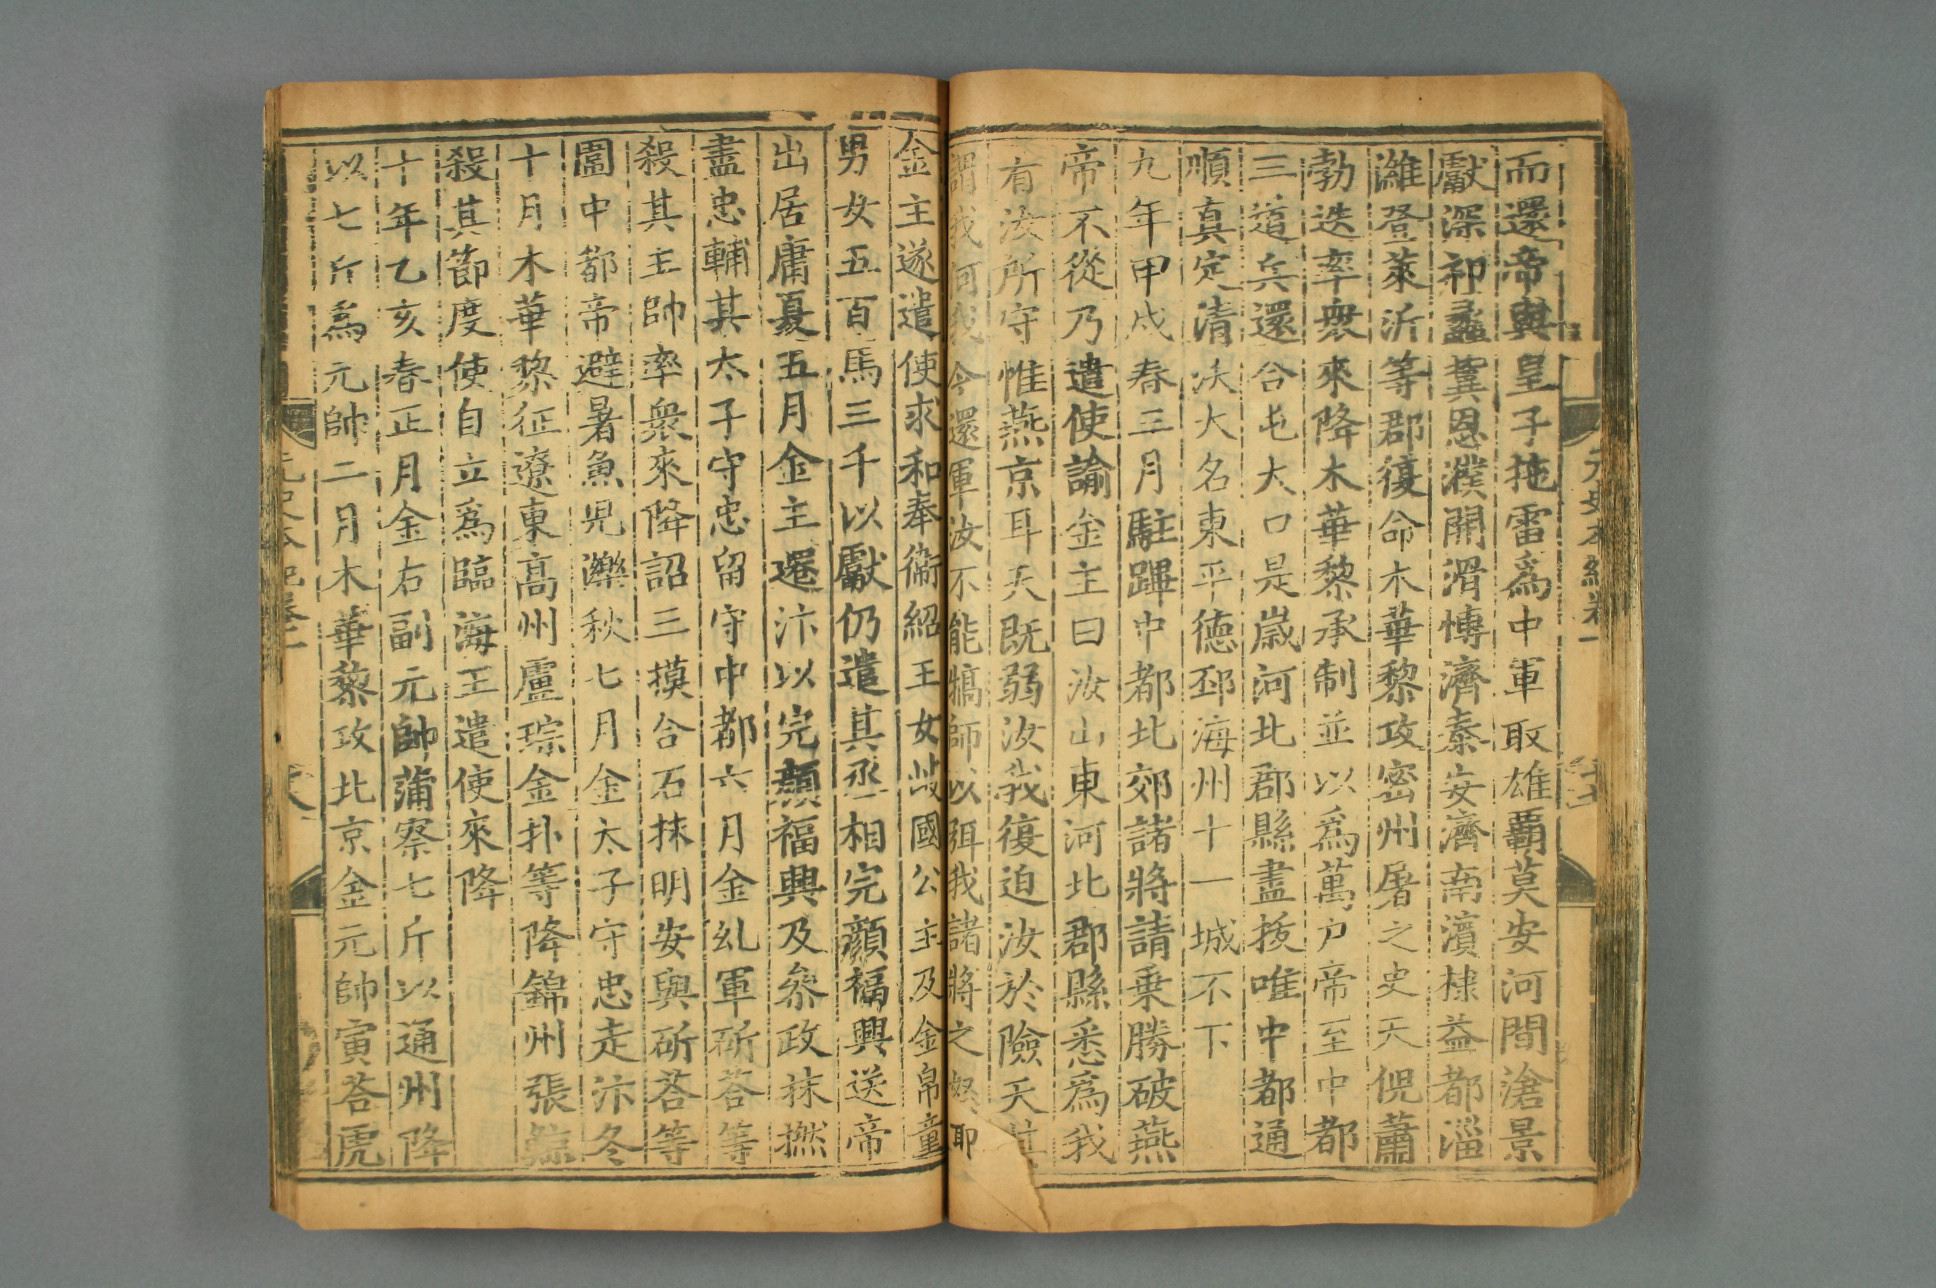 元史本紀卷一
而還帝與皇子拖雷爲中軍取雄覇莫安河間滄景
獻深祁蠡冀恩濮開滑愽濟泰安濟南濵棣益都淄
濰登萊沂等郡復命木華黎攻密州屠之史天倪蕭
勃迭率衆來降木華黎承制並以爲萬户帝至中都
三道兵還合屯大口是嵗河北郡縣盡拔唯中都通
順真定清沃大名東平德邳海州十一城不下
九年甲戌春三月駐蹕中都北郊諸將請乗勝破燕
帝不從乃遣使諭金主曰汝山東河北郡縣悉爲我
有汝所守惟燕京耳天既弱汝我復迫汝於險天其
謂我何我今還軍汝不能犒師以弭我諸將之怒耶
金主遂遣使求和奉衛紹王女歧國公主及金帛童
男女五百馬三千以獻仍遣其丞相完顔福興送帝
出居庸夏五月金主遷汴以完顔福興及叅政抹撚
盡忠輔其太子守忠留守中都六月金乣軍斫荅等
殺其主帥率衆來降詔三摸合石抹明安與斫荅等
圍中都帝避暑魚兒濼秋七月金太子守忠走汴冬
十月木華黎征遼東高州盧琮金扑等降錦州張鯨
殺其節度使自立爲臨海王遣使來降
十年乙亥春正月金右副元帥蒲察七斤以通州降
以七斤爲元帥二月木華黎攻北京金元帥寅荅虎
元史本紀卷一